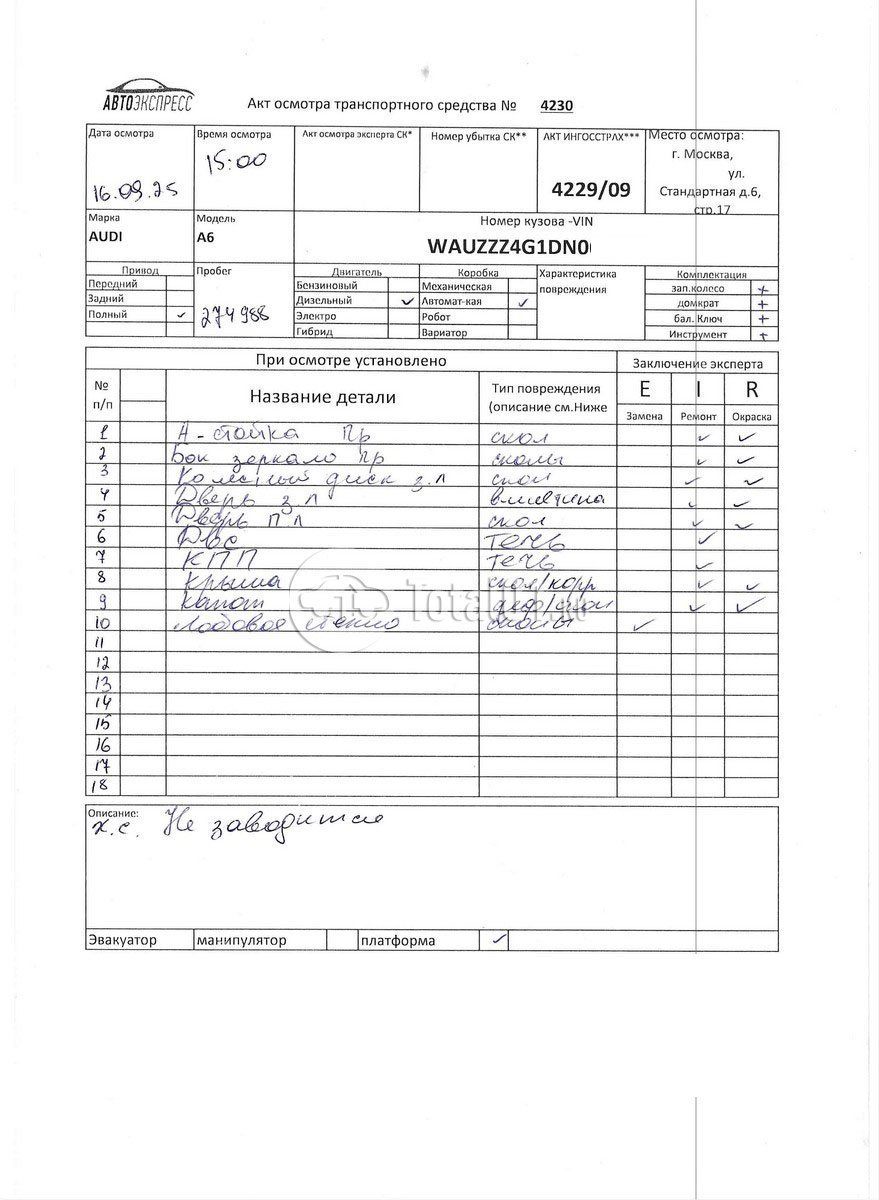 АВТОЭКСПРЕСС
Акт осмотра транспортного средства № 4230
Дата осмотра Время осмотра Акт осмотра эксперта СК* Номер убытка СК** АКТ ИНГОССТРАХ*** Место осмотра:
16.09.25 15:00 4229/09 г. Москва,
ул.
Стандартная д.6,
стр.17
Марка Модель Номер кузова -VIN
AUDI A6 WAUZZZ4G1DN0
Привод Пробег Двигатель Коробка Характеристика Комплектация
Передний Бензиновый Механическая повреждения зап.колесо +
Задний Дизельный ✓ Автомат-кая ✓ домкрат +
Полный ✓ 274988 Электро Робот бал. Ключ +
Гибрид Вариатор Инструмент +
При осмотре установлено Заключение эксперта
№ п/п Название детали Тип повреждения (описание см.Ниже E I R
Замена Ремонт Окраска
1 А-стойка пр скол ✓ ✓
2 Бок зеркало пр сколы ✓ ✓
3 Колесный диск з.л скол ✓ ✓
4 Дверь з л вмятина ✓ ✓
5 Дверь п л скол ✓ ✓
6 ДВС течь ✓
7 КПП течь ✓
8 Крыша скол/корр ✓ ✓
9 Капот ✓ ✓
10 Лобовое стекло сколы ✓
11
12
13
14
15
16
17
18
Total01.ru
Описание:
х.с. Не заводится
Эвакуатор манипулятор платформа ✓